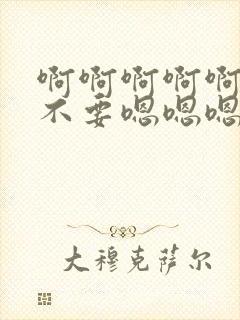 啊啊啊啊啊
不要嗯嗯嗯
大穆克萨尔